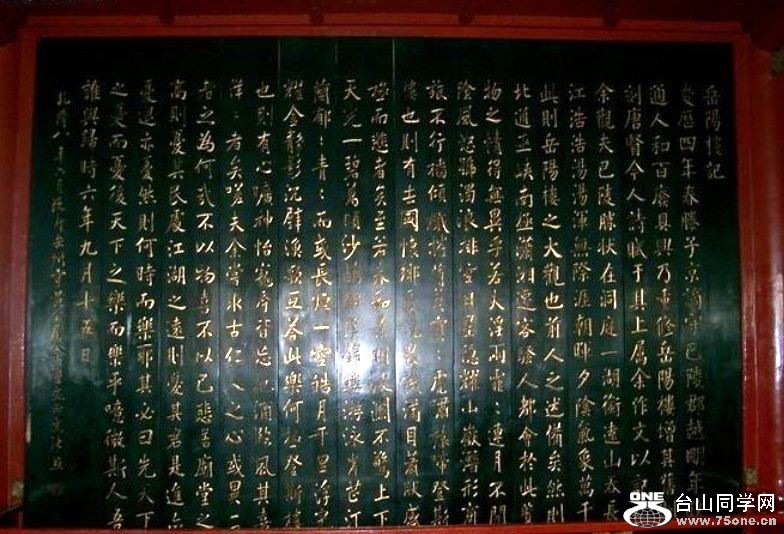 岳陽樓記
慶曆四年春滕子京謫守巴陵郡越明年
通人和百廢具興乃重修岳陽樓增其舊
刻唐賢今人詩賦于其上属余作文以
余觀夫巴陵勝状在洞庭一湖銜遠山吞長
江浩浩湯湯渾無際涯朝暉夕陰氣象萬千
此則岳陽樓之大觀也前人之述備矣然則
北通巫峡南極瀟湘遷客騷人都會於此
物之情得無異乎若夫淫雨霏:連月不開
陰風怒號濁浪排空日星隱耀山嶽潛形商
旅不行檣傾檝摧薄暮冥:虎嘯猿啼登斯
樓也則有去國懷鄉憂讒畏譏滿目蕭然感
極而悲者矣至若春和景明波瀾不驚上下
天光一碧萬頃沙鷗翔集錦鱗游泳岸芷汀
蘭郁:青:而或長煙一空皓月千里浮光
耀金静影沉璧漁歌互荅此樂何極登斯樓
也則有心曠神怡寵辱皆忘把酒臨風其喜
洋:者矣嗟夫余嘗求古仁人之心或異二
者之為何哉不以物喜不以己悲居廟堂之
高則憂其民處江湖之遠則憂其君是進亦
憂退亦憂然則何時而樂耶其必曰先天下
之憂而憂後天下之樂而樂乎噫微斯人吾
誰與歸時六年九月十五日
ONE
台山同学网
www.75one.cn